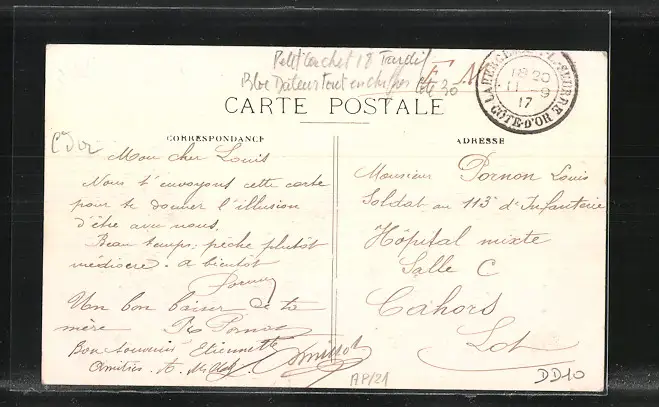 Petit cachet 18 Tardif
Bloc Dateur tout en chiffres côté 30
F M
LABERGEMENT-L.-SEURRE
18 20
11 -9
17
CÔTE-D'OR
CARTE POSTALE
C d'Or
CORRESPONDANCE
Mon cher Louis
Nous t'envoyons cette carte
pour te donner l'illusion
d'être avec nous.
Beau temps; pêche plutôt
médiocre. a bientôt
Un bon baiser de ta
mère Pornon
Bon souvenir Etiennette
Amitiés
ADRESSE
Monsieur Pornon Louis
Soldat au 113e d'Infanterie
Hôpital mixte
Salle C
Cahors
Lot
AP/21
DD10